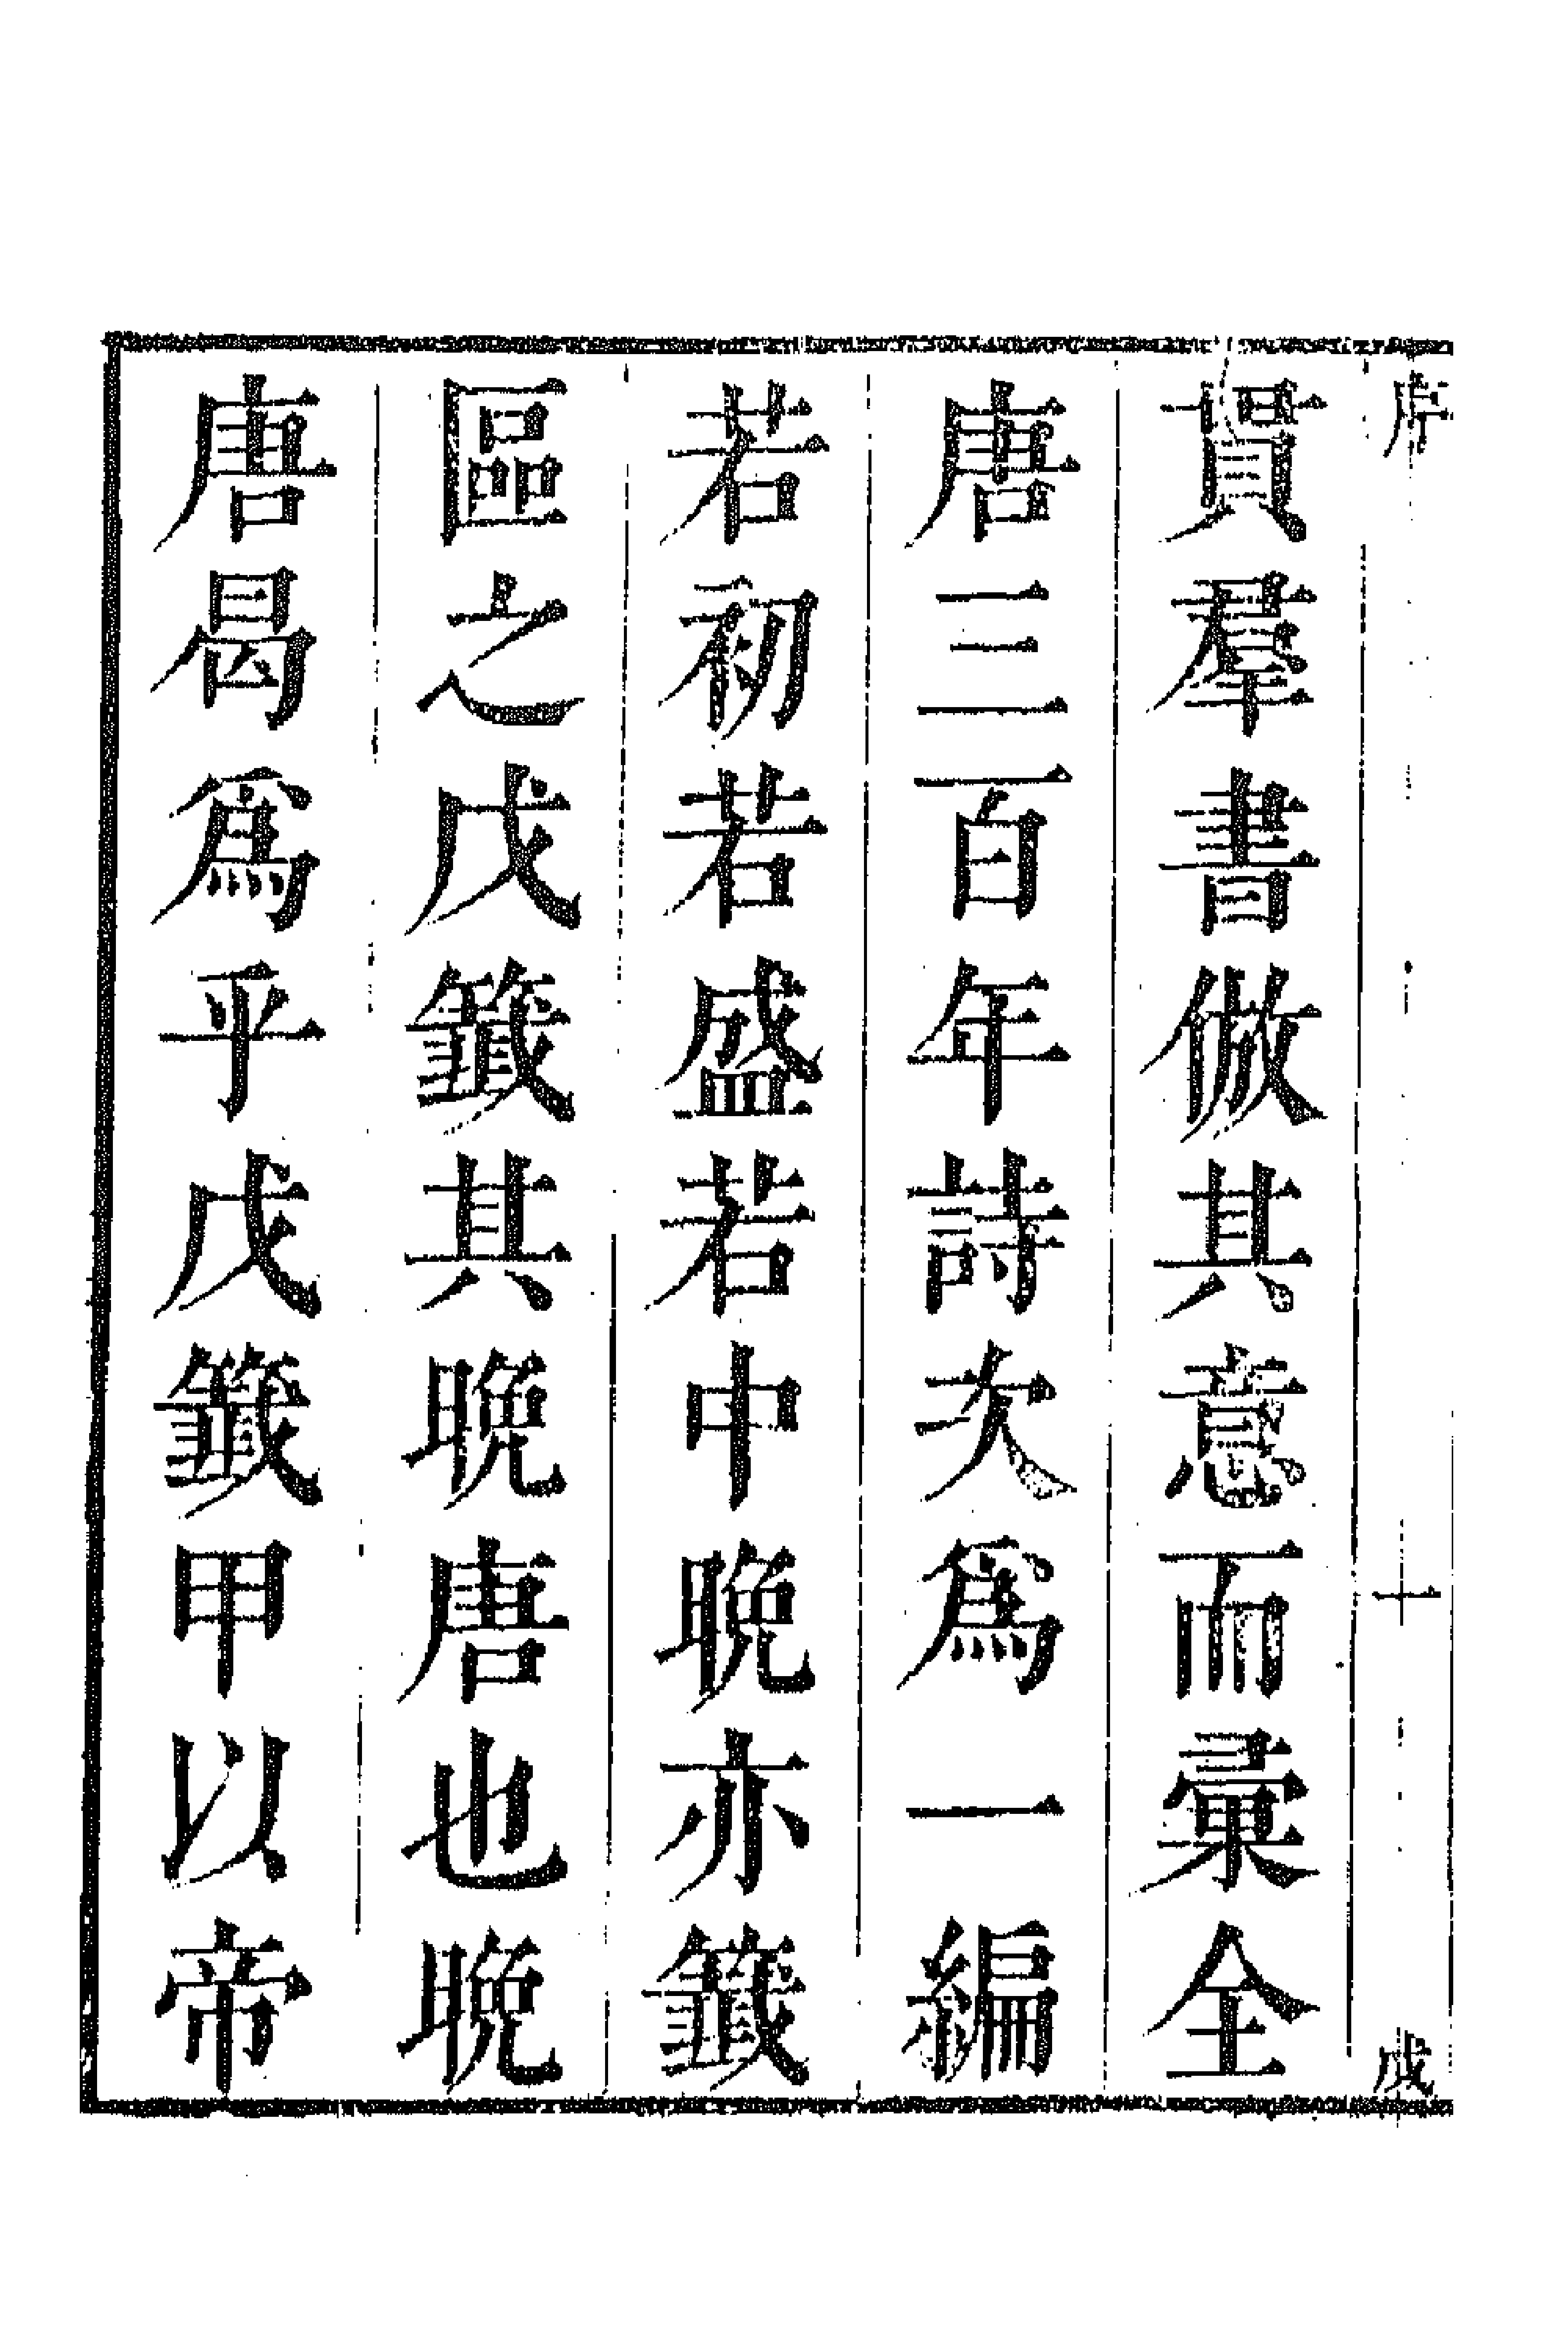 序 十 戊
貫羣書倣其意而彙全
唐三百年詩次爲一編
若初若盛若中晩亦籤
區之戊籤其晩唐也晩
唐曷爲乎戊籤甲以帝